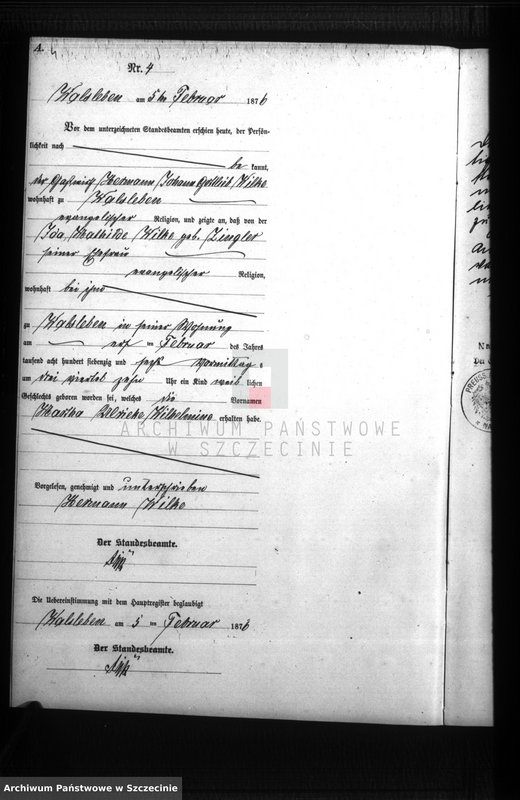 4.
Nr. 4
Walsleben am 5ten Februar 1876
Vor dem unterzeichneten Standesbeamten erschien heute, der Persön-
lichkeit nach
be kannt,
der Gastwirth Hermann Johann Gottlieb Wilke
wohnhaft zu Walsleben
evangelischer Religion, und zeigte an, daß von der
Ida Mathilde Wilke geb. Zingler
seiner Ehefrau
evangelischer Religion,
wohnhaft bei ihm
zu Walsleben in seiner Wohnung
am ten Februar des Jahres
tausend acht hundert siebenzig und sechs Vormittags
um drei viertel zehn Uhr ein Kind weib lichen
Geschlechts geboren worden sei, welches die Vornamen
Martha Ulricke Wilhelmine erhalten habe.
Vorgelesen, genehmigt und unterschrieben
Hermann Wilke
Der Standesbeamte.
Die Uebereinstimmung mit dem Hauptregister beglaubigt
Walsleben am 5 ten Februar 1876
Der Standesbeamte.
ARCHIWUM PAŃSTWOWE
W SZCZECINIE
PREUSS
Archiwum Państwowe w Szczecinie